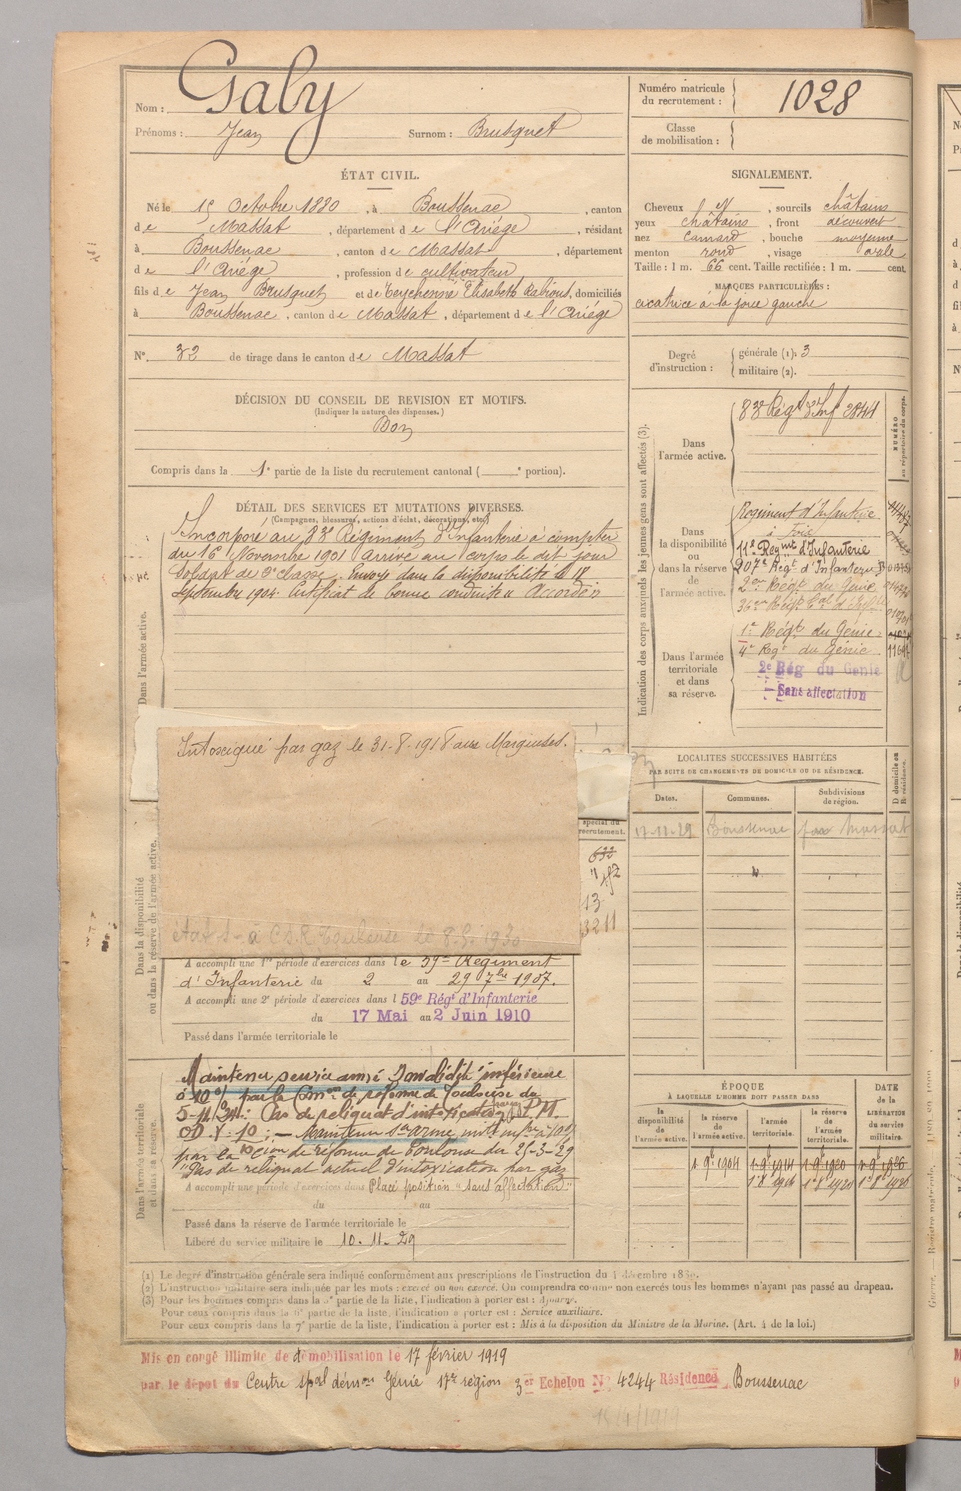 Nom : Galy
Prénoms : Jean Surnom : Brusquet
Numéro matricule du recrutement : 1028
Classe de mobilisation :
ÉTAT CIVIL.
Né le 15 Octobre 1880, à Boussenac, canton
de Massat, département de l'Ariége, résidant
à Boussenac, canton de Massat, département
de l'Ariége, profession de cultivateur
fils de Jean Brusquet et de Teychenné Elisabeth, domiciliés
à Boussenac, canton de Massat, département de l'Ariége
SIGNALEMENT.
Cheveux, sourcils châtains
yeux châtains, front découvert
nez camard, bouche moyenne
menton rond, visage ovale
Taille : 1 m. 66 cent. Taille rectifiée : 1 m. cent.
MARQUES PARTICULIÈRES :
cicatrice à la joue gauche
N° 32 de tirage dans le canton de Massat
Degré d'instruction : générale (1). 3
militaire (2).
DÉCISION DU CONSEIL DE REVISION ET MOTIFS.
(Indiquer la nature des dispenses.)
Bon
Compris dans la 1e partie de la liste du recrutement cantonal ( e portion).
DÉTAIL DES SERVICES ET MUTATIONS DIVERSES.
(Campagnes, blessures, actions d'éclat, décorations, etc.)
Incorporé au 83e Régiment d'Infanterie à compter
du 16 Novembre 1901 arrivé au corps le dit jour
Soldat de 2e classe. Envoyé dans la disponibilité le 18
Septembre 1904. Certificat de bonne conduite « Accordé »
Dans l'armée active.
Indication des corps auxquels les jeunes gens sont affectés (3).
NUMÉRO au répertoire du corps.
Dans l'armée active.
83e Régt d'Inf 2844
Dans la disponibilité ou dans la réserve de l'armée active.
Régiment d'Infanterie
à Foix
11e Régiment d'Infanterie
207e Régt d'Infanterie
2e Régt du Génie
Dans l'armée territoriale et dans sa réserve.
1er Régt du Génie
4e Régt du Génie
2e Rég du Genie
Sans affectation
Intoxiqué par gaz le 31-8-1918 aux Marquises.
spécial du recrutement.
13
3211
Etat S-à C.S.R Toulouse le 8.5.1930
LOCALITÉS SUCCESSIVES HABITÉES
PAR SUITE DE CHANGEMENTS DE DOMICILE OU DE RÉSIDENCE.
Dates. Communes. Subdivisions de région. D domicile ou R résidence.
17-11-29 Boussenac par Massat
Dans la disponibilité ou dans la réserve de l'armée active.
A accompli une 1re période d'exercices dans le 59e Régiment
d'Infanterie du 2 au 29 7bre 1907.
A accompli une 2e période d'exercices dans l 59e Régt d'Infanterie
du 17 Mai au 2 Juin 1910
Passé dans l'armée territoriale le
Dans l'armée territoriale et dans sa réserve.
Maintenu service armé Invalidité inférieure
à 10% par la Comon de réforme de Toulouse du
5-11-24 : Pas de reliquat d'intoxication
Maintenu Sce armé
par la Cion de réforme de Toulouse du 25-3-29
"Pas de reliquat actuel d'intoxication par gaz
A accompli une période d'exercices dans Placé position "sans affectation"
du au
Passé dans la réserve de l'armée territoriale le
Libéré du service militaire le 10.11.29
ÉPOQUE À LAQUELLE L'HOMME DOIT PASSER DANS
la disponibilité de l'armée active. la réserve de l'armée active. l'armée territoriale. la réserve de l'armée territoriale. DATE de la LIBÉRATION du service militaire.
1.9bre 1904 1.9bre 1914 1.9bre 1920 1.9bre 1926
(1) Le degré d'instruction générale sera indiqué conformément aux prescriptions de l'instruction du 4 décembre 1889.
(2) L'instruction militaire sera indiquée par les mots : exercé ou non exercé. On comprendra comme non exercés tous les hommes n'ayant pas passé au drapeau.
(3) Pour les hommes compris dans la 5e partie de la liste, l'indication à porter est : Ajourné.
Pour ceux compris dans la 6e partie de la liste, l'indication à porter est : Service auxiliaire.
Pour ceux compris dans la 7e partie de la liste, l'indication à porter est : Mis à la disposition du Ministre de la Marine. (Art. 4 de la loi.)
Mis en congé illimité de démobilisation le 17 février 1919
par le dépôt du Centre Spal démon Génie 17e région 3er Echelon N° 4244 Résidence Boussenac